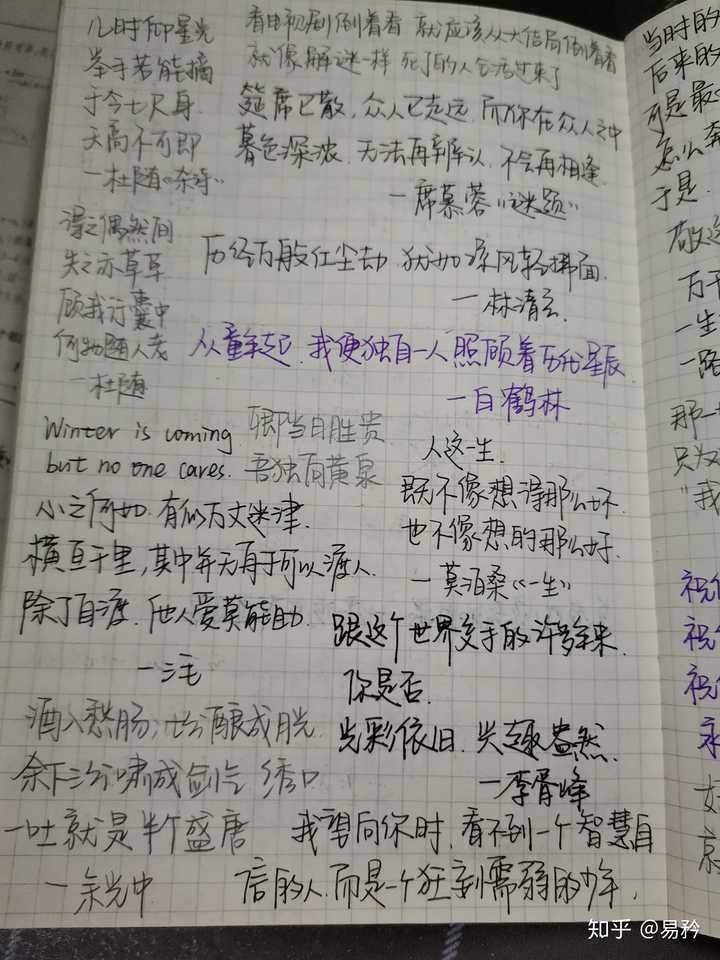 儿时仰星光
举手若能摘
于今七尺身
天高不可即
一杜随《杂诗》
看电视剧倒着看 就应该从大结局倒着看
就像解谜一样 死了的人会活过来了
筵席已散，众人已走远，而你在众人之中
暮色深浓，无法再辨认，不会再相逢
一席慕蓉《谜题》
得之偶然间
失之亦草草
顾我行囊中
何物随人老
一杜随
历经百般红尘劫，犹如凉风轻拂面.
一林清玄.
从童年起，我便独自一人照顾着历代星辰
一白鹤林
Winter is coming
but no one cares.
卿当日胜贵
吾独向黄泉
人这一生.
既不像想得那么坏
也不像想的那么好.
一莫泊桑《一生》
心之何如，有似万丈迷津.
横亘千里，其中并无舟子可以渡人.
除了自渡，他人爱莫能助.
一三毛
跟这个世界交手的许多年来.
你是否.
光彩依旧，兴趣盎然.
一李宵峰
酒入愁肠；七分酿成月光
余下三分啸成剑气 绣口
一吐就是半个盛唐
一余光中
我望向你时，看不到一个智慧自
信的人，而是一个狂到懦弱的少年.
当时的
后来的
可是最
怎么奔
于是.
敬这
万千
一生
一路
那一
只为
"我
祝你
祝
祝
永
好
京
知乎 @易矜